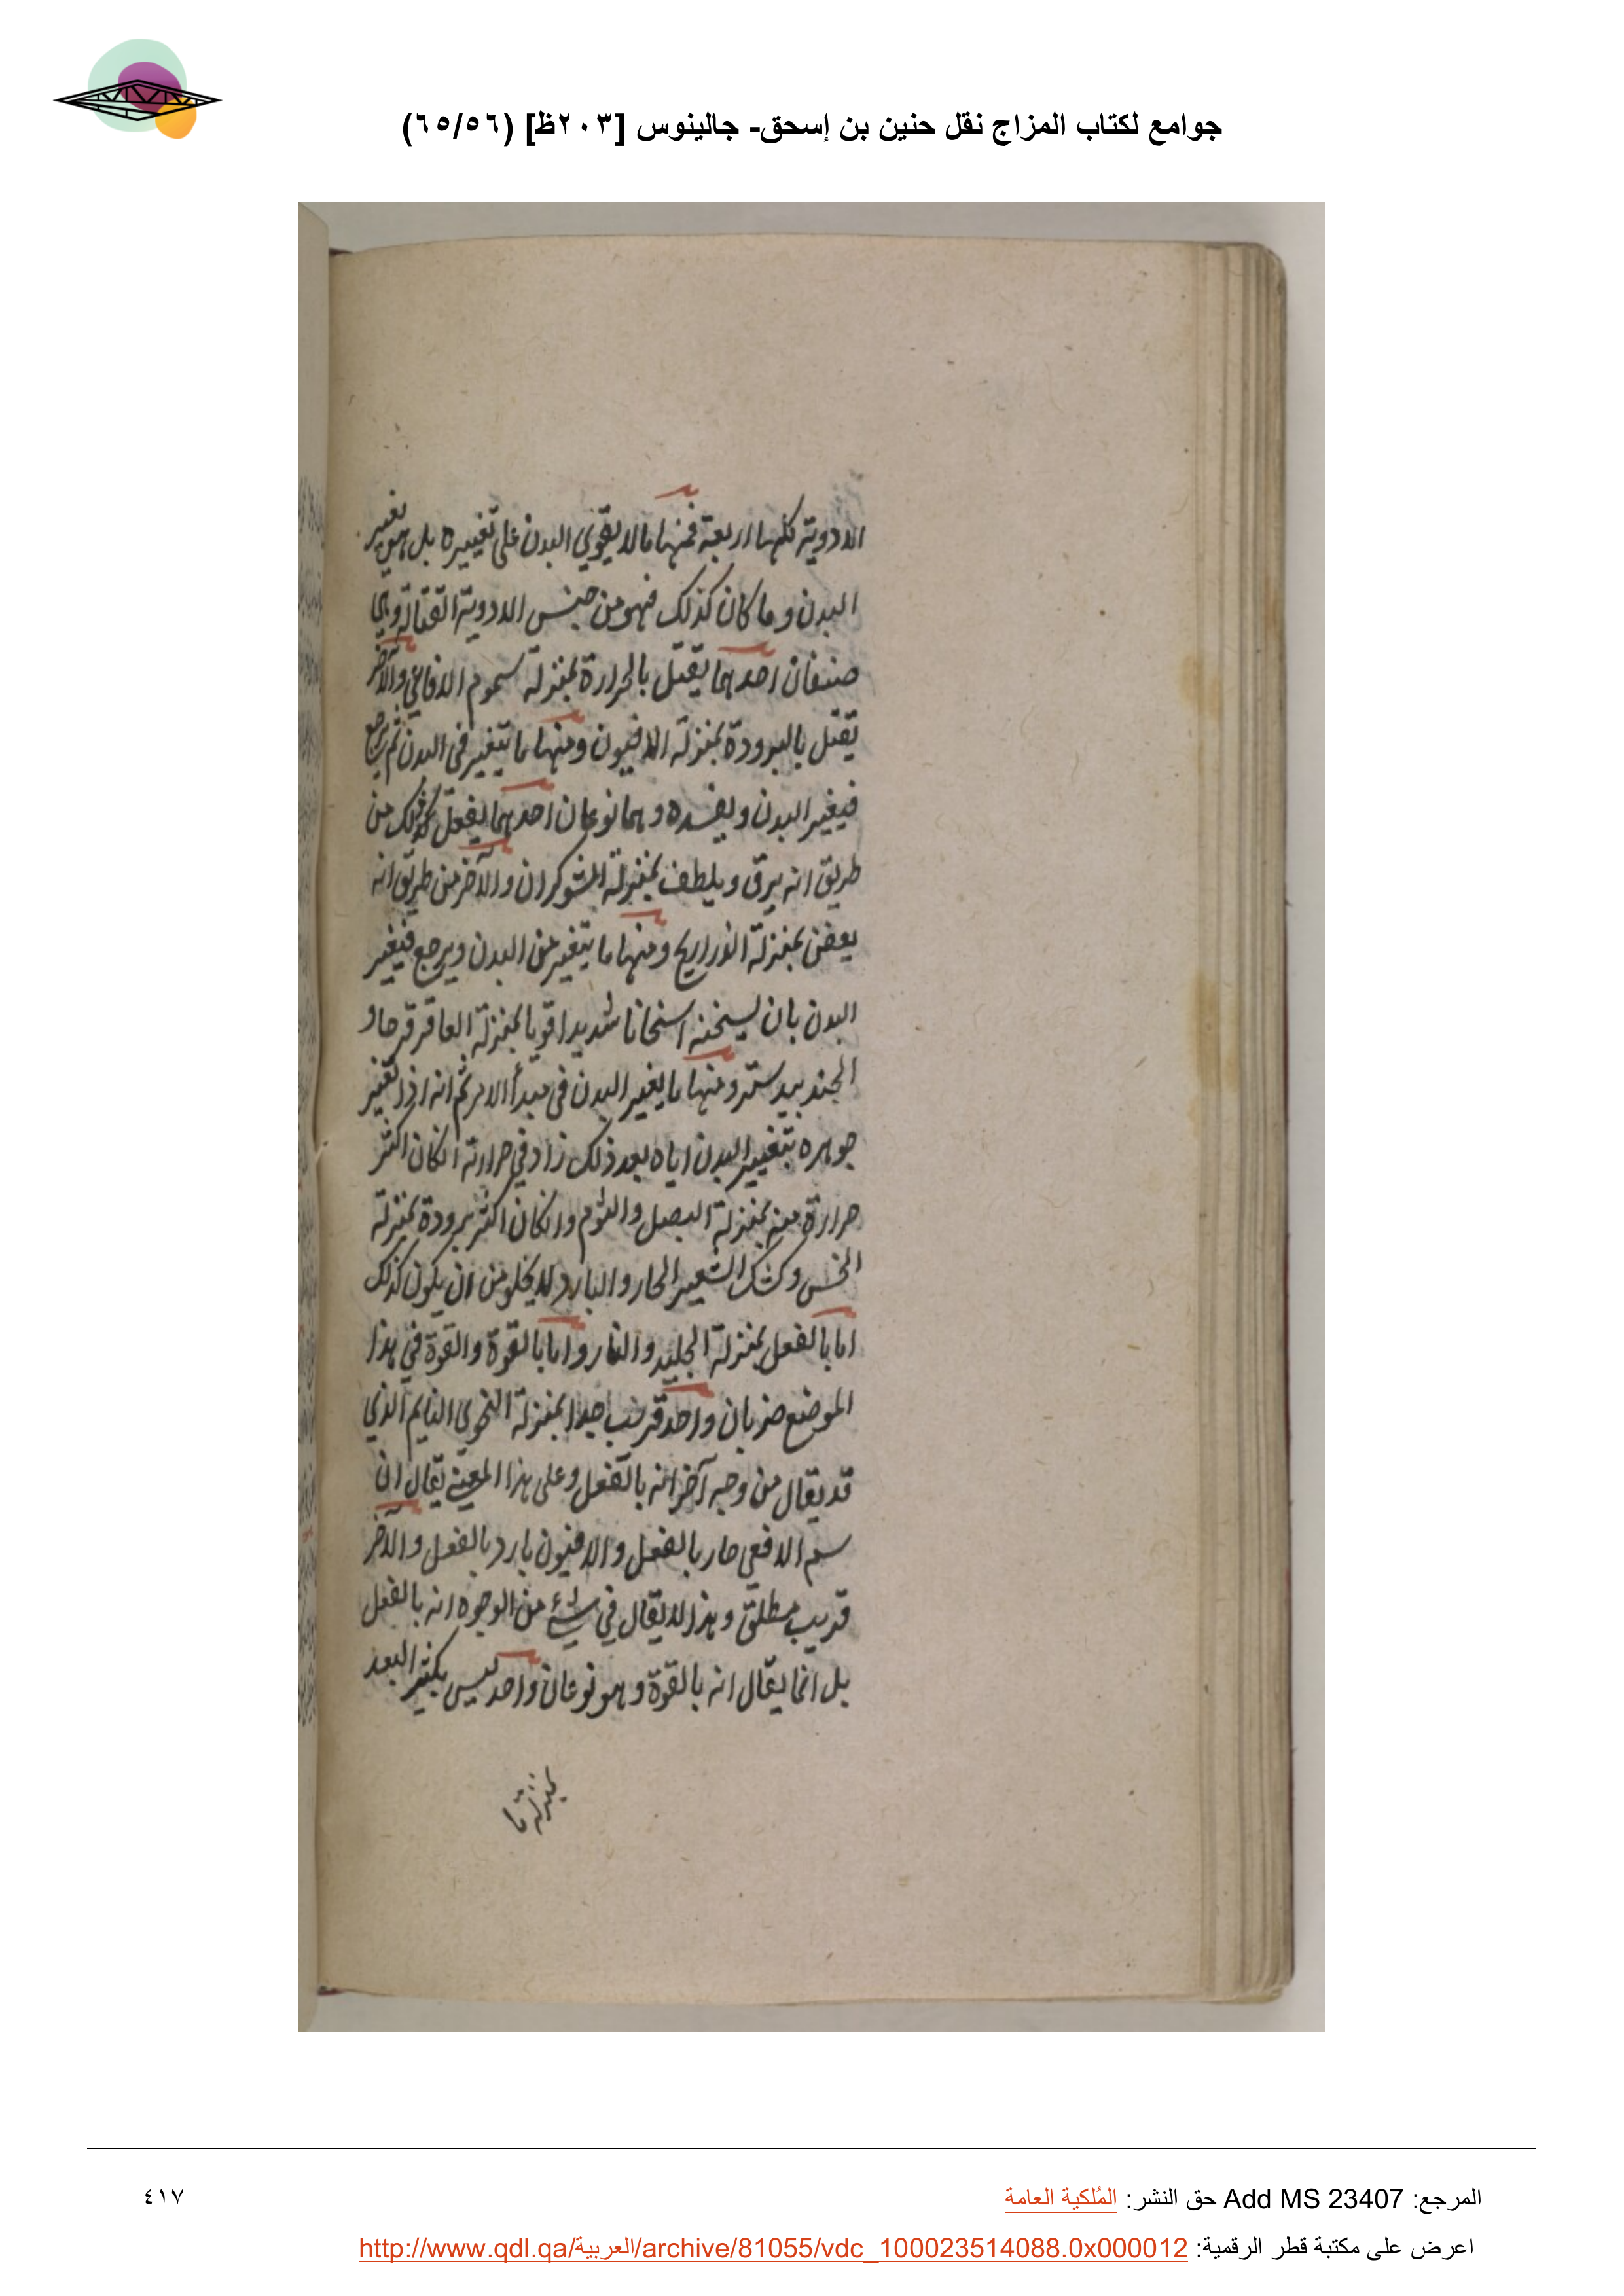 جوامع لكتاب المزاج نقل حنين بن إسحق- جالينوس [٢٠٣ظ] (٦٥/٥٦)
الادوية كلها اربعة فمنها ما لا يقوي البدن على تغييره بل هو يغير
البدن وما كان كذلك فهو من جنس الادوية القتالة وهي
صنفان احدهما يقتل بالحرارة بمنزلة سموم الافاعي والآخر
يقتل بالبرودة بمنزلة الافيون ومنها ما يتغير في البدن ثم يرجع
فيغير البدن ويفسده وهما نوعان احدهما يفعل ذلك من
طريق انه يرق ويلطف بمنزلة الشوكران والآخر من طريق انه
يعفن بمنزلة الذراريح ومنها ما يتغير من البدن ويرجع فيغير
البدن بان يسخنه اسخانا شديدا قويا بمنزلة العاقرقرحا و
الجندبيدستر ومنها ما يغير البدن في مبدأ الامر ثم انه اذا تغير
جوهره بتغيير البدن اياه بعد ذلك زاد في حرارته ان كان اكثر
حرارة منه بمنزلة البصل والثوم وان كان اكثر برودة بمنزلة
الخس وكشك الشعير الحار والبارد لا يخلو من ان يكون كذلك
اما بالفعل بمنزلة الجليد والنار واما بالقوة والقوة في هذا
الموضع ضربان واحد قريب جدا بمنزلة النحوى النايم الذي
قد يقال من وجه آخر انه بالفعل وعلى هذا المعنى يقال ان
سم الافعى حار بالفعل والافيون بارد بالفعل والآخر
قريب مطلق وهذا لا يقال في شيء من الوجوه انه بالفعل
بل انما يقال انه بالقوة وهو نوعان واحد ليس بكثير البعد
بمنزلة ما
المرجع: Add MS 23407 حق النشر: المُلكية العامة
٤١٧
اعرض على مكتبة قطر الرقمية: http://www.qdl.qa/العربية/archive/81055/vdc_100023514088.0x000012